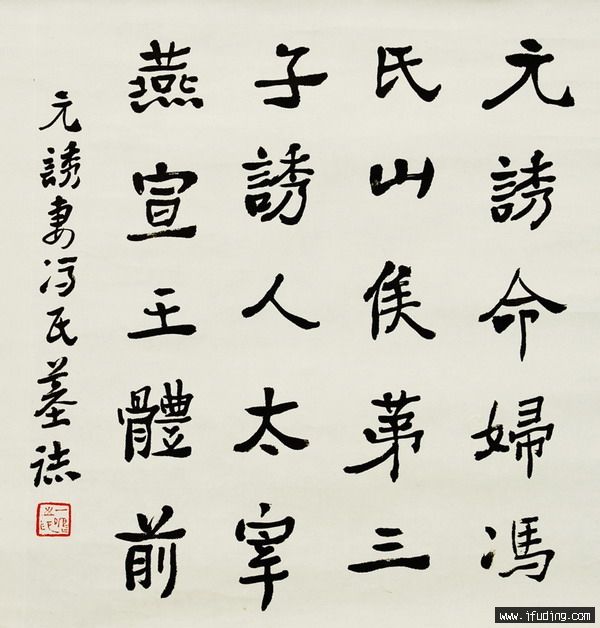 元誘命婦馮
氏山侯苐三
子誘人太宰
燕宣王體前
元誘妻馮氏墓誌
www.ifuding.com